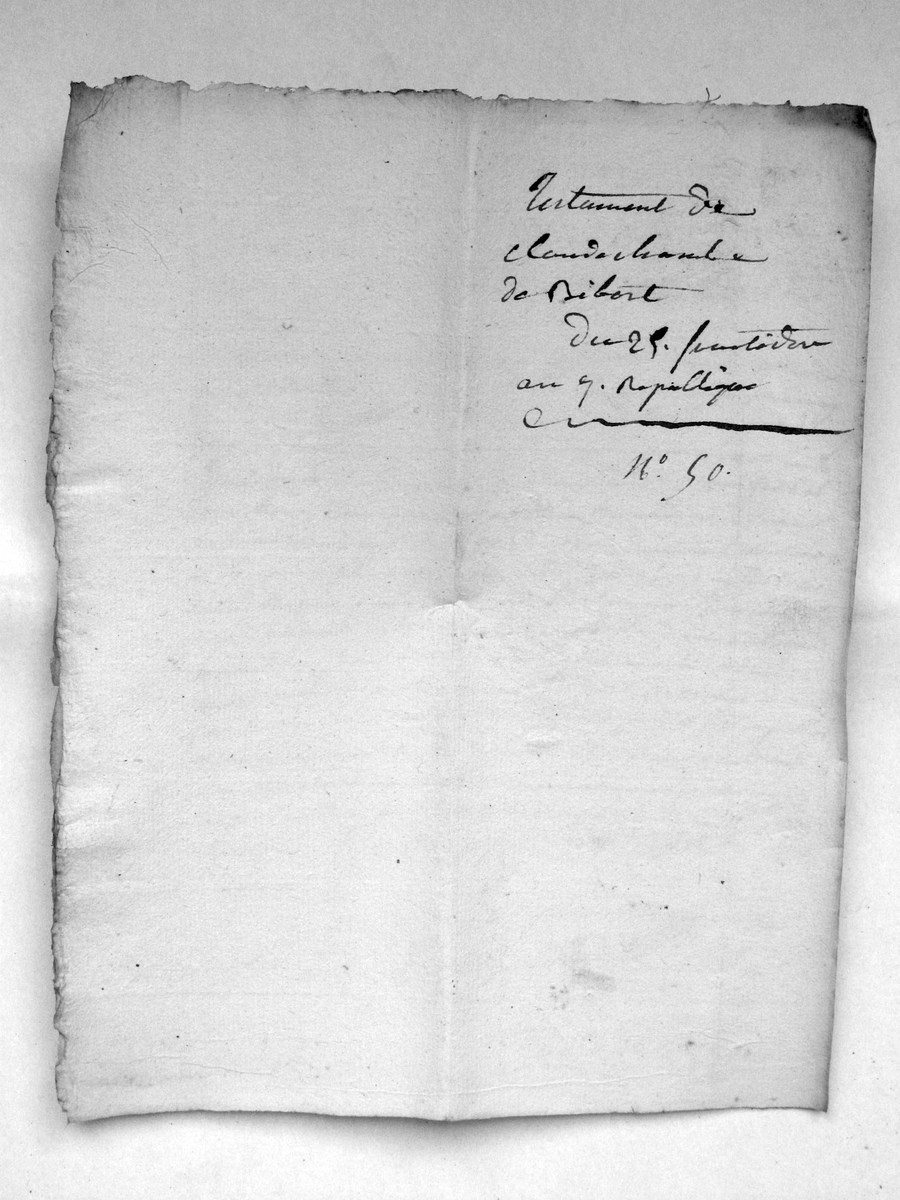 Testament de
Claude
de Ribert
Du 25. fructidor
an 9. Republique
N.° 50.